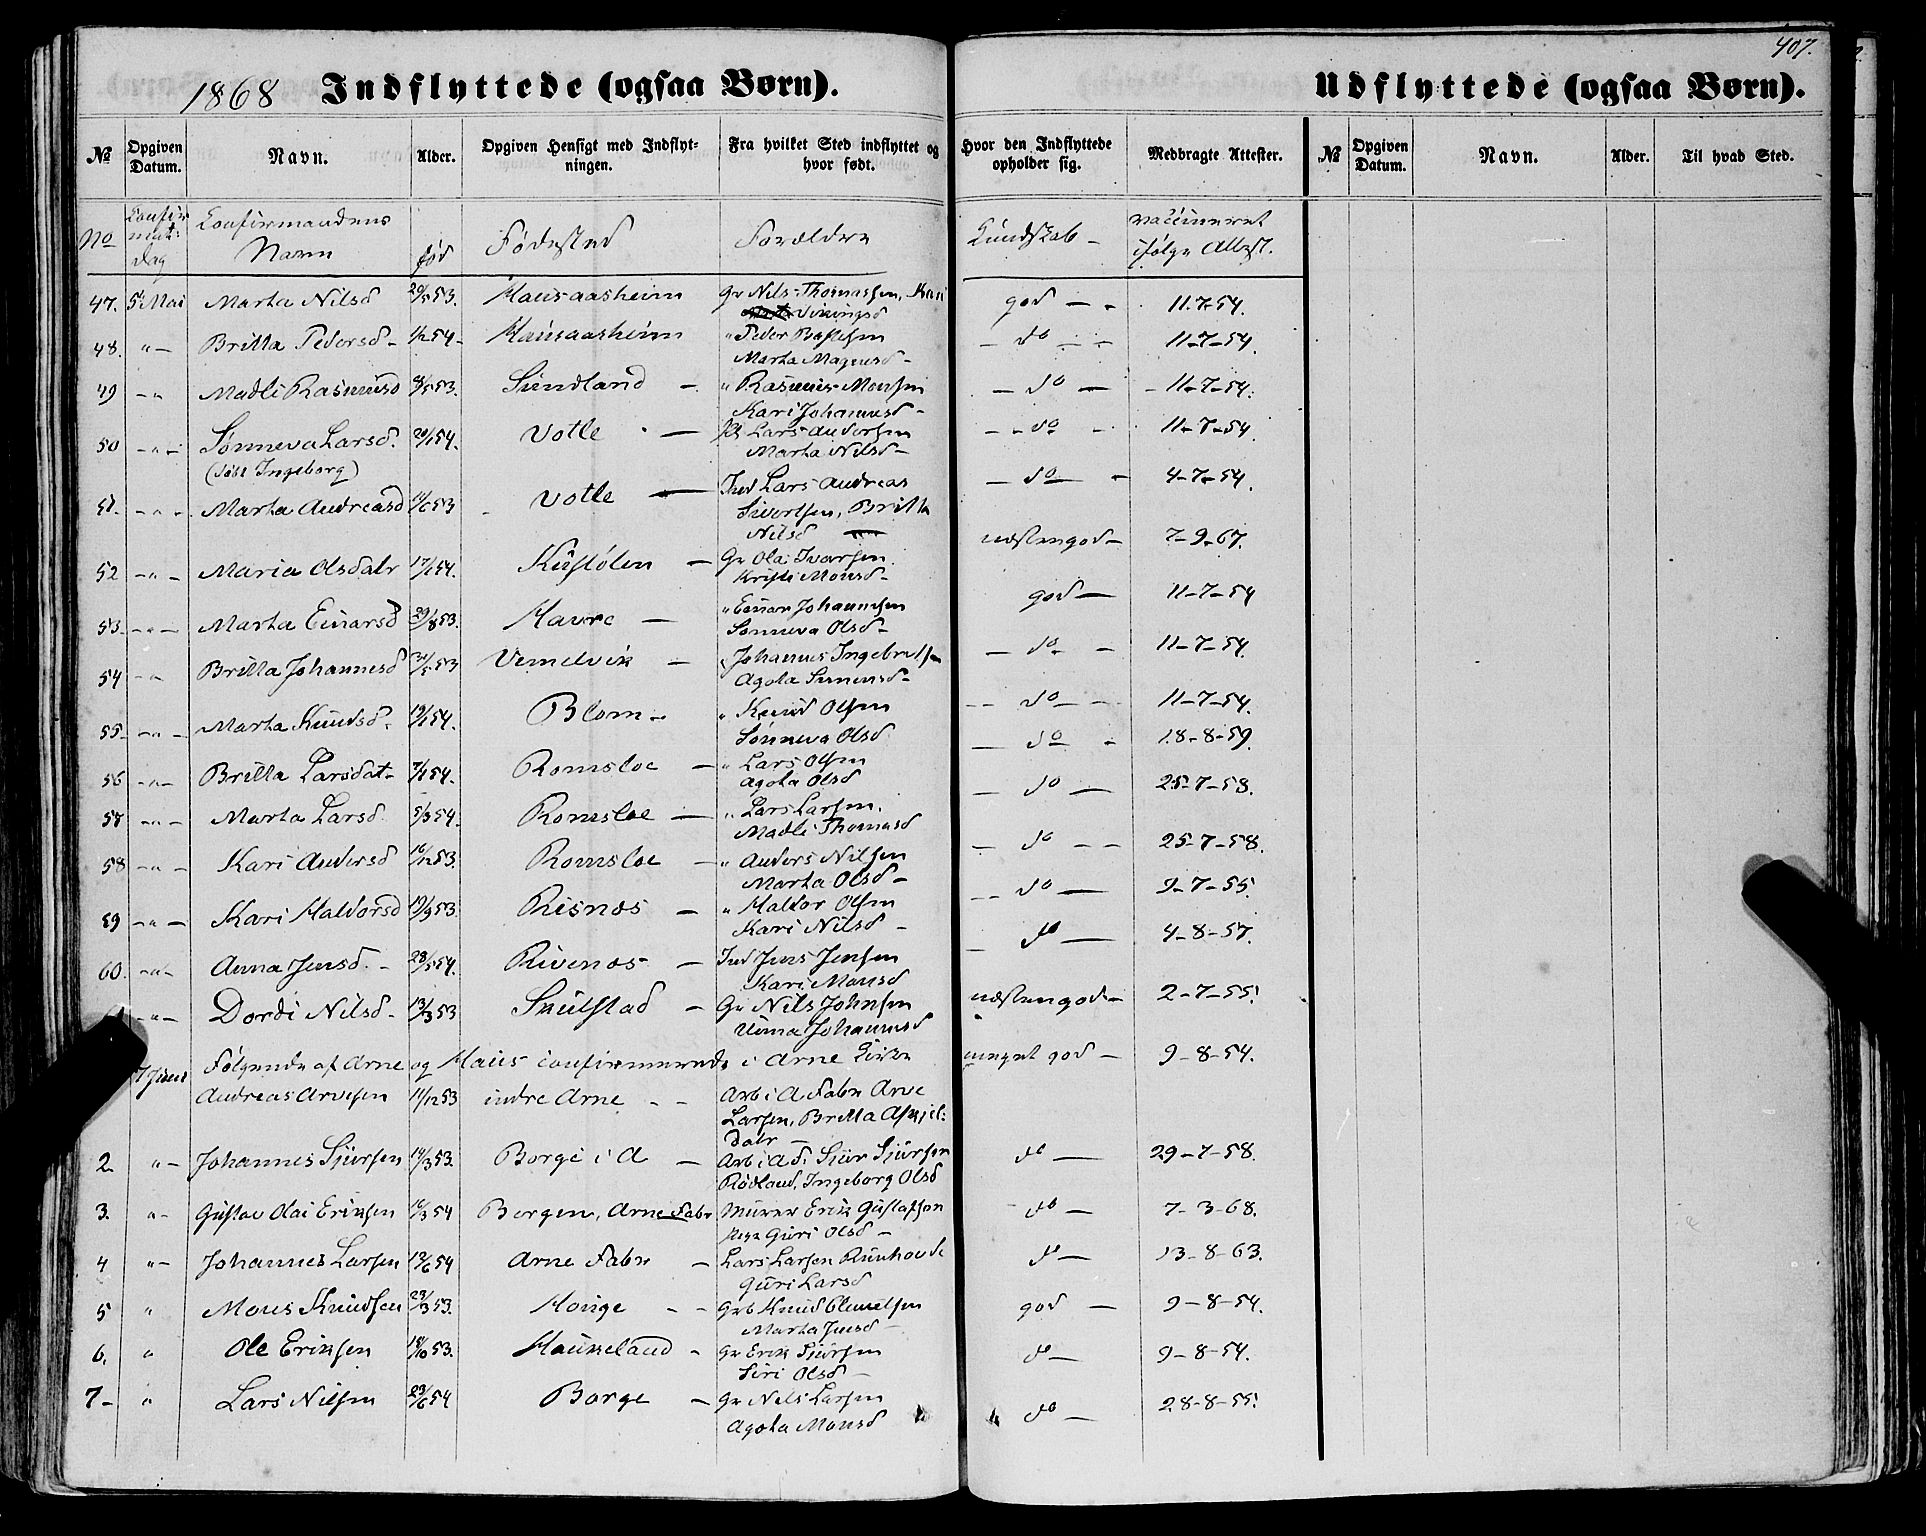 407.
1868 Indflyttede (ogsaa Børn). Udflyttede (ogsaa Børn).
№ Opgiven Datum. Navn. Alder. Opgiven Hensigt med Indflytningen. Fra hvilket Sted indflyttet og hvor født. Hvor den Indflyttede opholder sig. Medbragte Attester. № Opgiven Datum. Navn. Alder. Til hvad Sted.
No Confirmat: dag Confirmandens Navn fød Fødested Forældre Kundskab - vaccineret ifølge Attest.
47. 5 Mai Marta Nilsd 29/5 53. Hausaasheim Gr Nils Thomassen, Kari god - - 11-7-54.
Vikingsd
48. " - Britta Pedersd - 1/2 54 - Hausaasheim " Peder Bastesen - do - - 11-7-54.
Marta Magnusd -
49 - " Madli Rasmusd 8/5 53. Sundland - " Rasmus Monsen - do - - 11-7-54.
Kari Johannesd -
50 - " - Sønneva Larsd. 20/1 54. Votle - Lars Andersen - - do - 11-7-54.
(døbt Ingeborg) Marta Nilsd -
51. - " - Marta Andreasd 11/6 53 Votle - Ind Lars Andreas - do - 4-7-54.
Sivertsen, Britta
Nilsd
52 - " - Maria Olsdatr 17/1 54. Kustølen - Gr Ola Ivarsen næsten god - 7-9-67.
Kristi Monsd -
53 - " - Marta Einarsd 29/8 53. Havre - " Einar Johannesen god - 11-7-54
Sønneva Olsd -
54 - " Britta Johannesd 31/5 53 Vemelvik - " Johannes Ingebretsen - do - - 11-7-54.
Agota Simensd -
55 - " - Marta Knudsd - 19/1 54. Blom - " Knud Olsen -- do - - 11-7-54.
Sønneva Olsd
56 - " - Britta Larsdat - 7/1 54. Romsloe - " Lars Olsen - do - 18-8-59.
Agota Olsd
57 - " - Marta Larsd 5/3 54. Romsloe - " Lars Larsen. - do - 25-7-58.
Madli Thomasd
58 - " - Kari Andersd 16/12 53. Romsloe - " Anders Nilsen - do - - 25-7-58.
Marta Olsd -
59 - " - Kari Haldorsd 19/9 53. Risnæs - " Haldor Olsen - do - 9-7-55
Kari Nilsd -
60. - " - Anna Jensd. - 28/5 54. Rivenæs - Ind Jens Jensen - do - 4-8-57.
Kari Monsd
- " - Dordi Nilsd - 13/3 53 Skulstad - Gr Nils Johnsen næsten god - 2-7-55.
Unna Johannesd
7 Juni Følgende af Arne og Haus confirmerede i Arne Kirke meget god - 9-8-54.
Andreas Arnesen 11/12 53 indre Arne - - Arb i A Fabr Arne
Larsen, Britta Askjel:
datr -
2. " - Johannes Sjursen 14/3 53. Borge i A - Arb i A F. Sjur Sjursen do - 29-7-58.
Rødland, Ingeborg Olsd
3. " - Gustav Olai Eriksen 16/3 54 Borgen, Arne Fabr Murer Erik Gustafsen do - 7-3-68.
Guri Olsd -
4 " - Johannes Larsen 13/6 54 Arne Fabr - Lars Larsen Runhovde do - 13-8-63.
Guri Larsd
5 " Mons Knudsen 23/3 53. Houge - - Grb Knud Clemetsen god - 9-8-54.
Marta Jensd -
6. " Ole Eriksen 18/10 53. Haukeland - Gr Erik Sjursen do - 9-8-54.
Siri Olsd -
7 - " Lars Nilsen 23/6 54 Borge - Gr Nils Larsen do - 28-8-55.
Agota Monsd